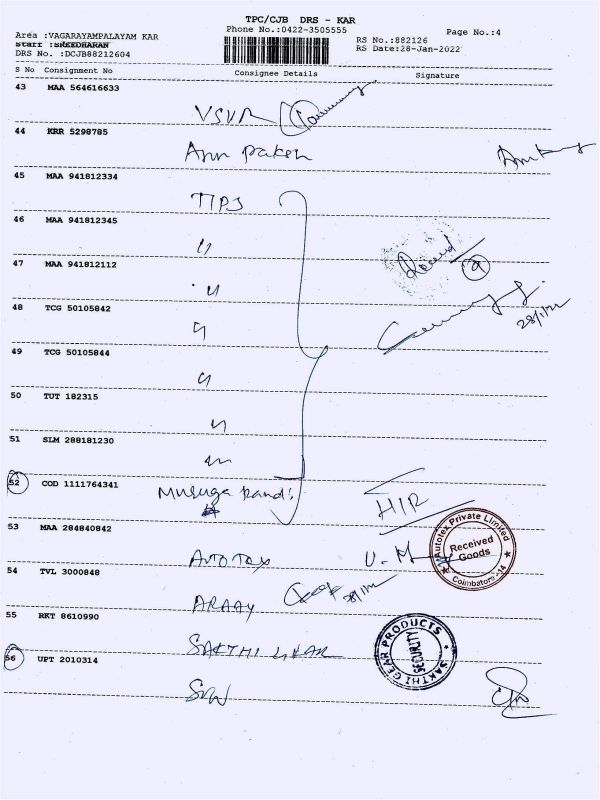 TPC/CJB DRS - KAR
Phone No.:0422-3505555
Page No.:4
Area :VAGARAYAMPALAYAM KAR
Staff :SREEDHARAN
DRS No. :DCJB88212604
RS No.:882126
RS Date:28-Jan-2022
S No Consignment No Consignee Details Signature
43 MAA 564616633
VSVR
44 KRR 5298785
Ann
45 MAA 941812334
TIPS
46 MAA 941812345
"
47 MAA 941812112
"
48 TCG 50105842
"
28/1/22
49 TCG 50105844
"
50 TUT 182315
"
51 SLM 288181230
"
52 COD 1111764341
Muruga
H/R
53 MAA 284840842
Autotex
Autotex Private Limited
Received Goods
Coimbatore - 14
54 TVL 3000848
ARAAY
28/1/22
55 RKT 8610990
SAKTHI GEAR
SAKTHI GEAR PRODUCTS
SECURITY
56 UPT 2010314